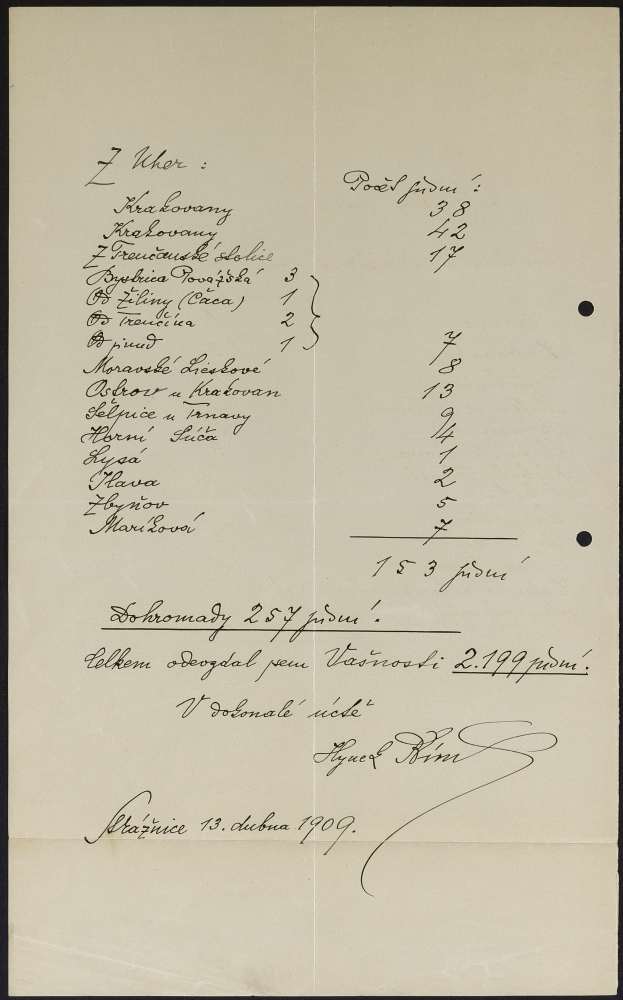 Z Uher :
Počet písní :
Krakovany 38
Krakovany 42
Z Trenčanské stolice 17
Bystrica Povážská 3
Od Žiliny (Čáca) 1
Od Trenčína 2
Od jinud 1 7
Moravské Lieskové 8
Ostrov u Krakovan 13
Šelpice u Trnavy 9
Horní Súča 4
Lysá 1
Ilava 2
Zbyňov 5
Maríková 7
153 písní
Dohromady 257 písní.
Celkem odevzdal jsem Vašnosti 2.199 písní.
V dokonalé úctě
Hynek Bím
Strážnice 13. dubna 1909.